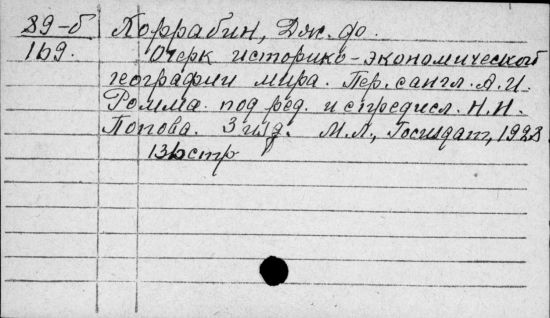 89-б Хоррабин, Дж. Ф.
169. Очерк историко-экономической
географии мира. Пер. с англ. А.И.
Ромма. под ред. и с предисл. Н.Н.
Попова. 3 изд. М.Л., Госиздат, 1928
136 стр